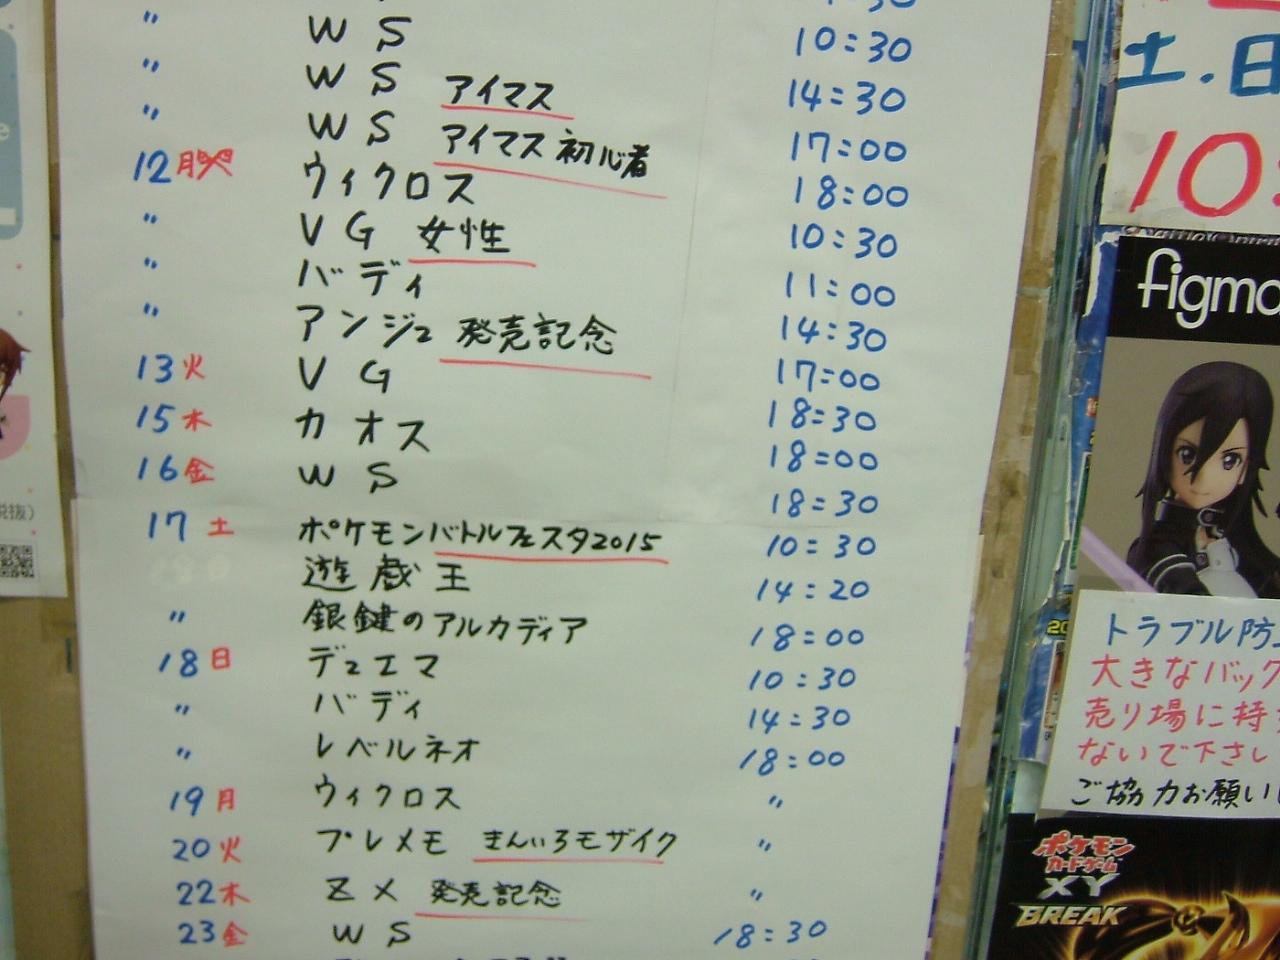 10:30
〃 WS 14:30
〃 WS アイマス 17:00
〃 WS アイマス初心者 18:00
12月祝 ウィクロス 10:30
〃 VG 女性 11:00
〃 バディ 14:30
〃 アンジュ 発売記念 17:00
13火 VG 18:30
15木 カオス 18:00
16金 WS 18:30
17土 ポケモンバトルフェスタ2015 10:30
遊戯王 14:20
〃 銀鍵のアルカディア 18:00
18日 デュエマ 10:30
〃 バディ 14:30
〃 レベルネオ 18:00
19月 ウィクロス 〃
20火 プレメモ きんいろモザイク 〃
22木 ZX 発売記念 〃
23金 WS 18:30
税抜)
土.日
10:
figma
トラブル防
大きなバック
売り場に持
ないで下さい
ご協力お願いし
ポケモン
カードゲーム
XY
BREAK